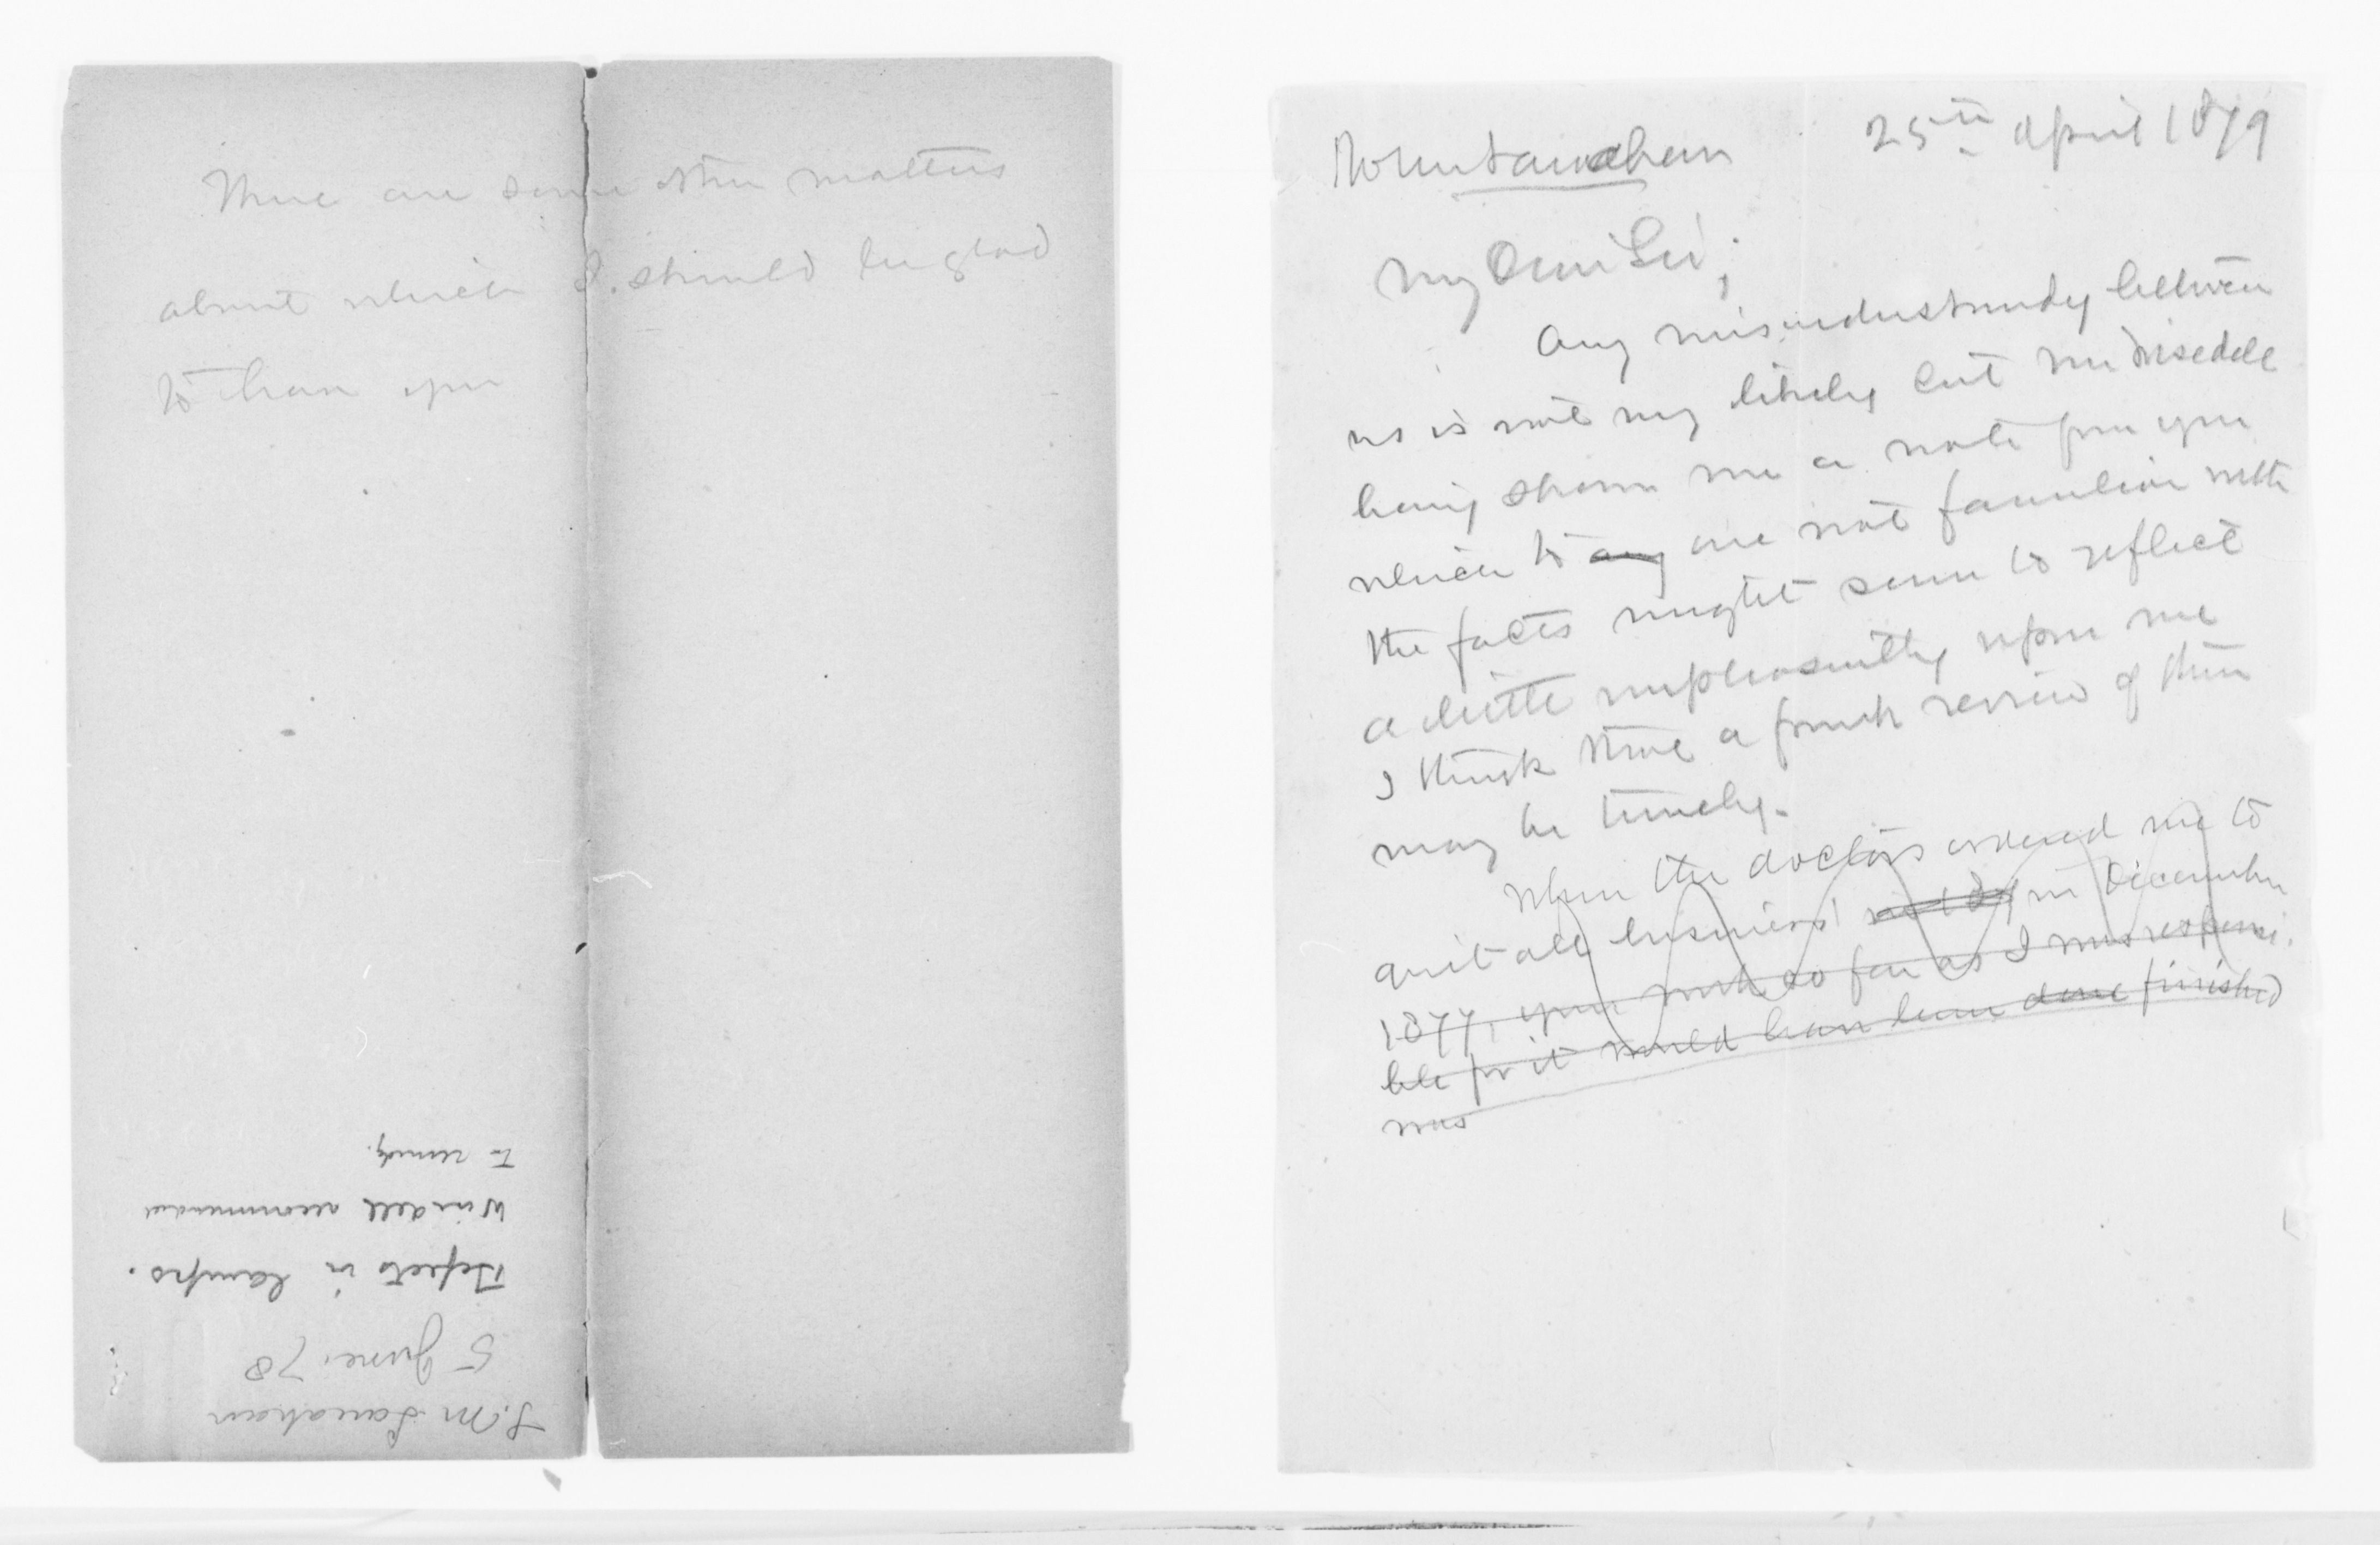 There are some other matters
about which I should be glad
to have you
to remedy.
Wisedell recommended
Defects in lamps.
5 June. 78
T. M Lanahan
25th April 1879
Lanahan
My Dear Sir;
Any misunderstandg between
us is not very likely but Mr Wisedell
having shown me a note from you
which to any one not familiar with
the facts might seem to reflect
a little unpleasantly upon me
I think that a frank review of them
may be timely.
When the doctors ordered me to
quit all business in December
1877, your work so far as I was responsi-
ble for it would have been done finished
was